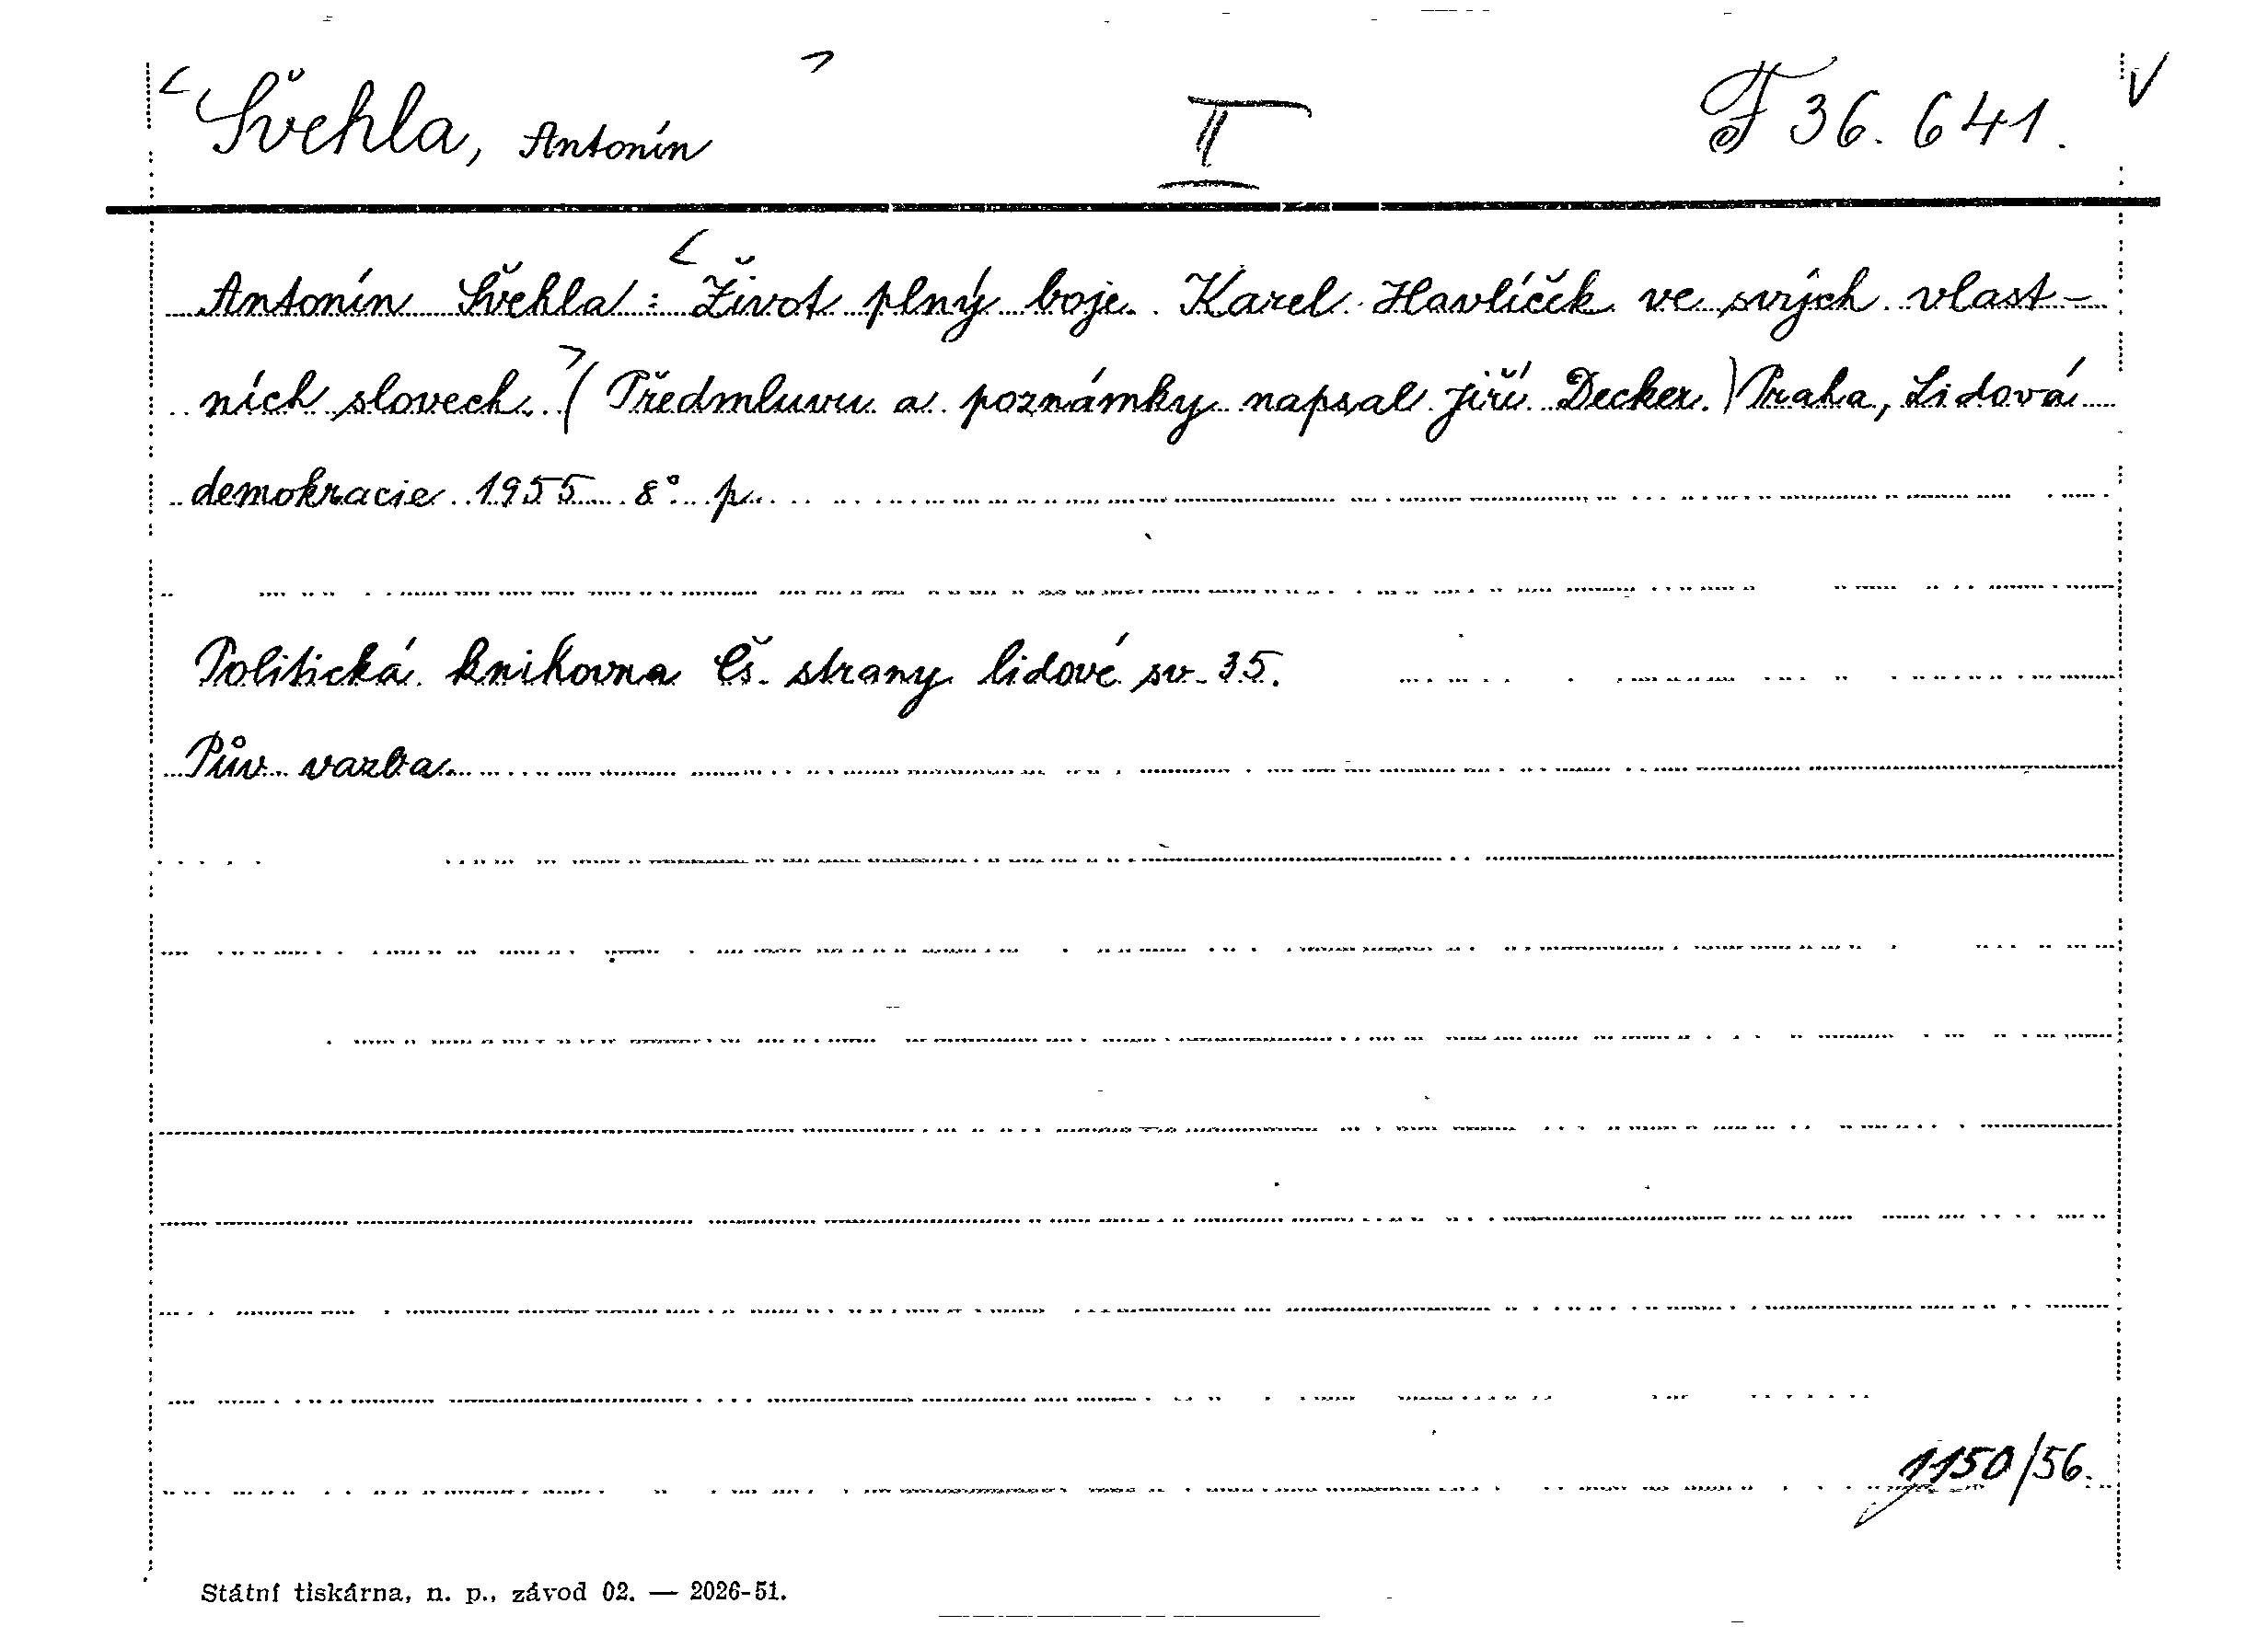 < Švehla, Antonín > II F 36.641. V
Antonín Švehla: < Život plný boje. Karel Havlíček ve svých vlast-
ních slovech. > (Předmluvu a poznámky napsal Jiří Decker.) Praha, Lidová
demokracie 1955 8° p.
Politická knihovna Čs. strany lidové sv. 35.
Pův. vazba.
1150/56.
Státní tiskárna, n. p., závod 02. — 2026-51.